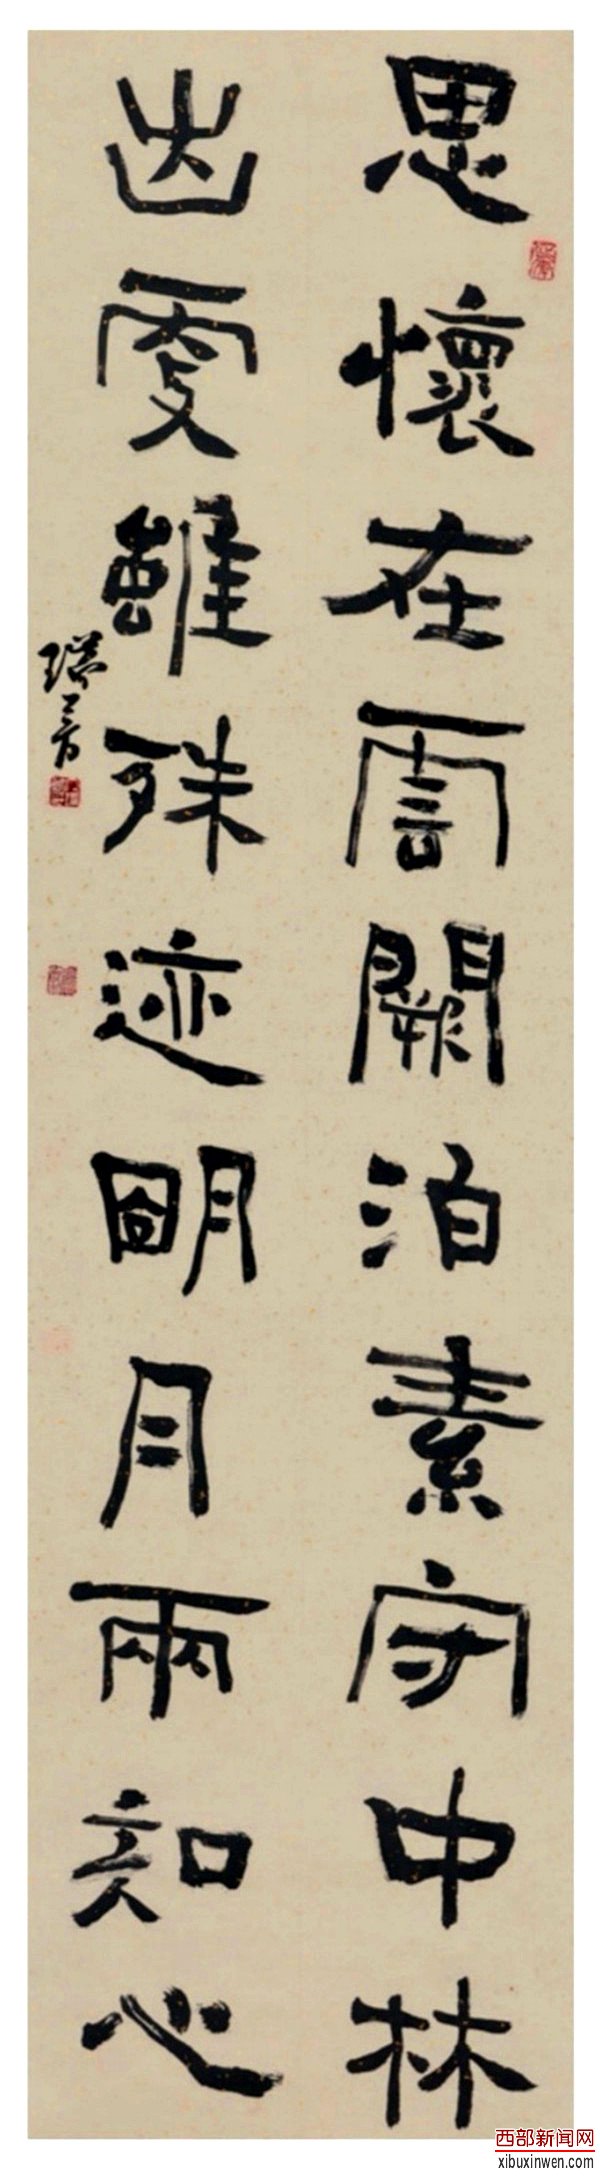 思懷在雲闕泊素守中林
出處雖殊迹明月兩知心
西部新闻网
xibuxinwen.com